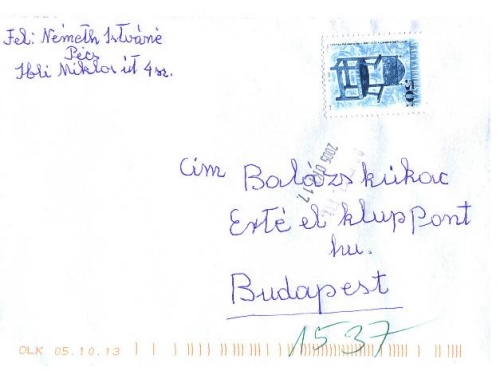 Fel: Németh Istváné
Pécs
Ibli Miklos út 4 sz.
50.
2005 07. 17
Cim Balázs kukac
Erté el klup Pont
hu.
Budapest
1537
OLK 05.10.13